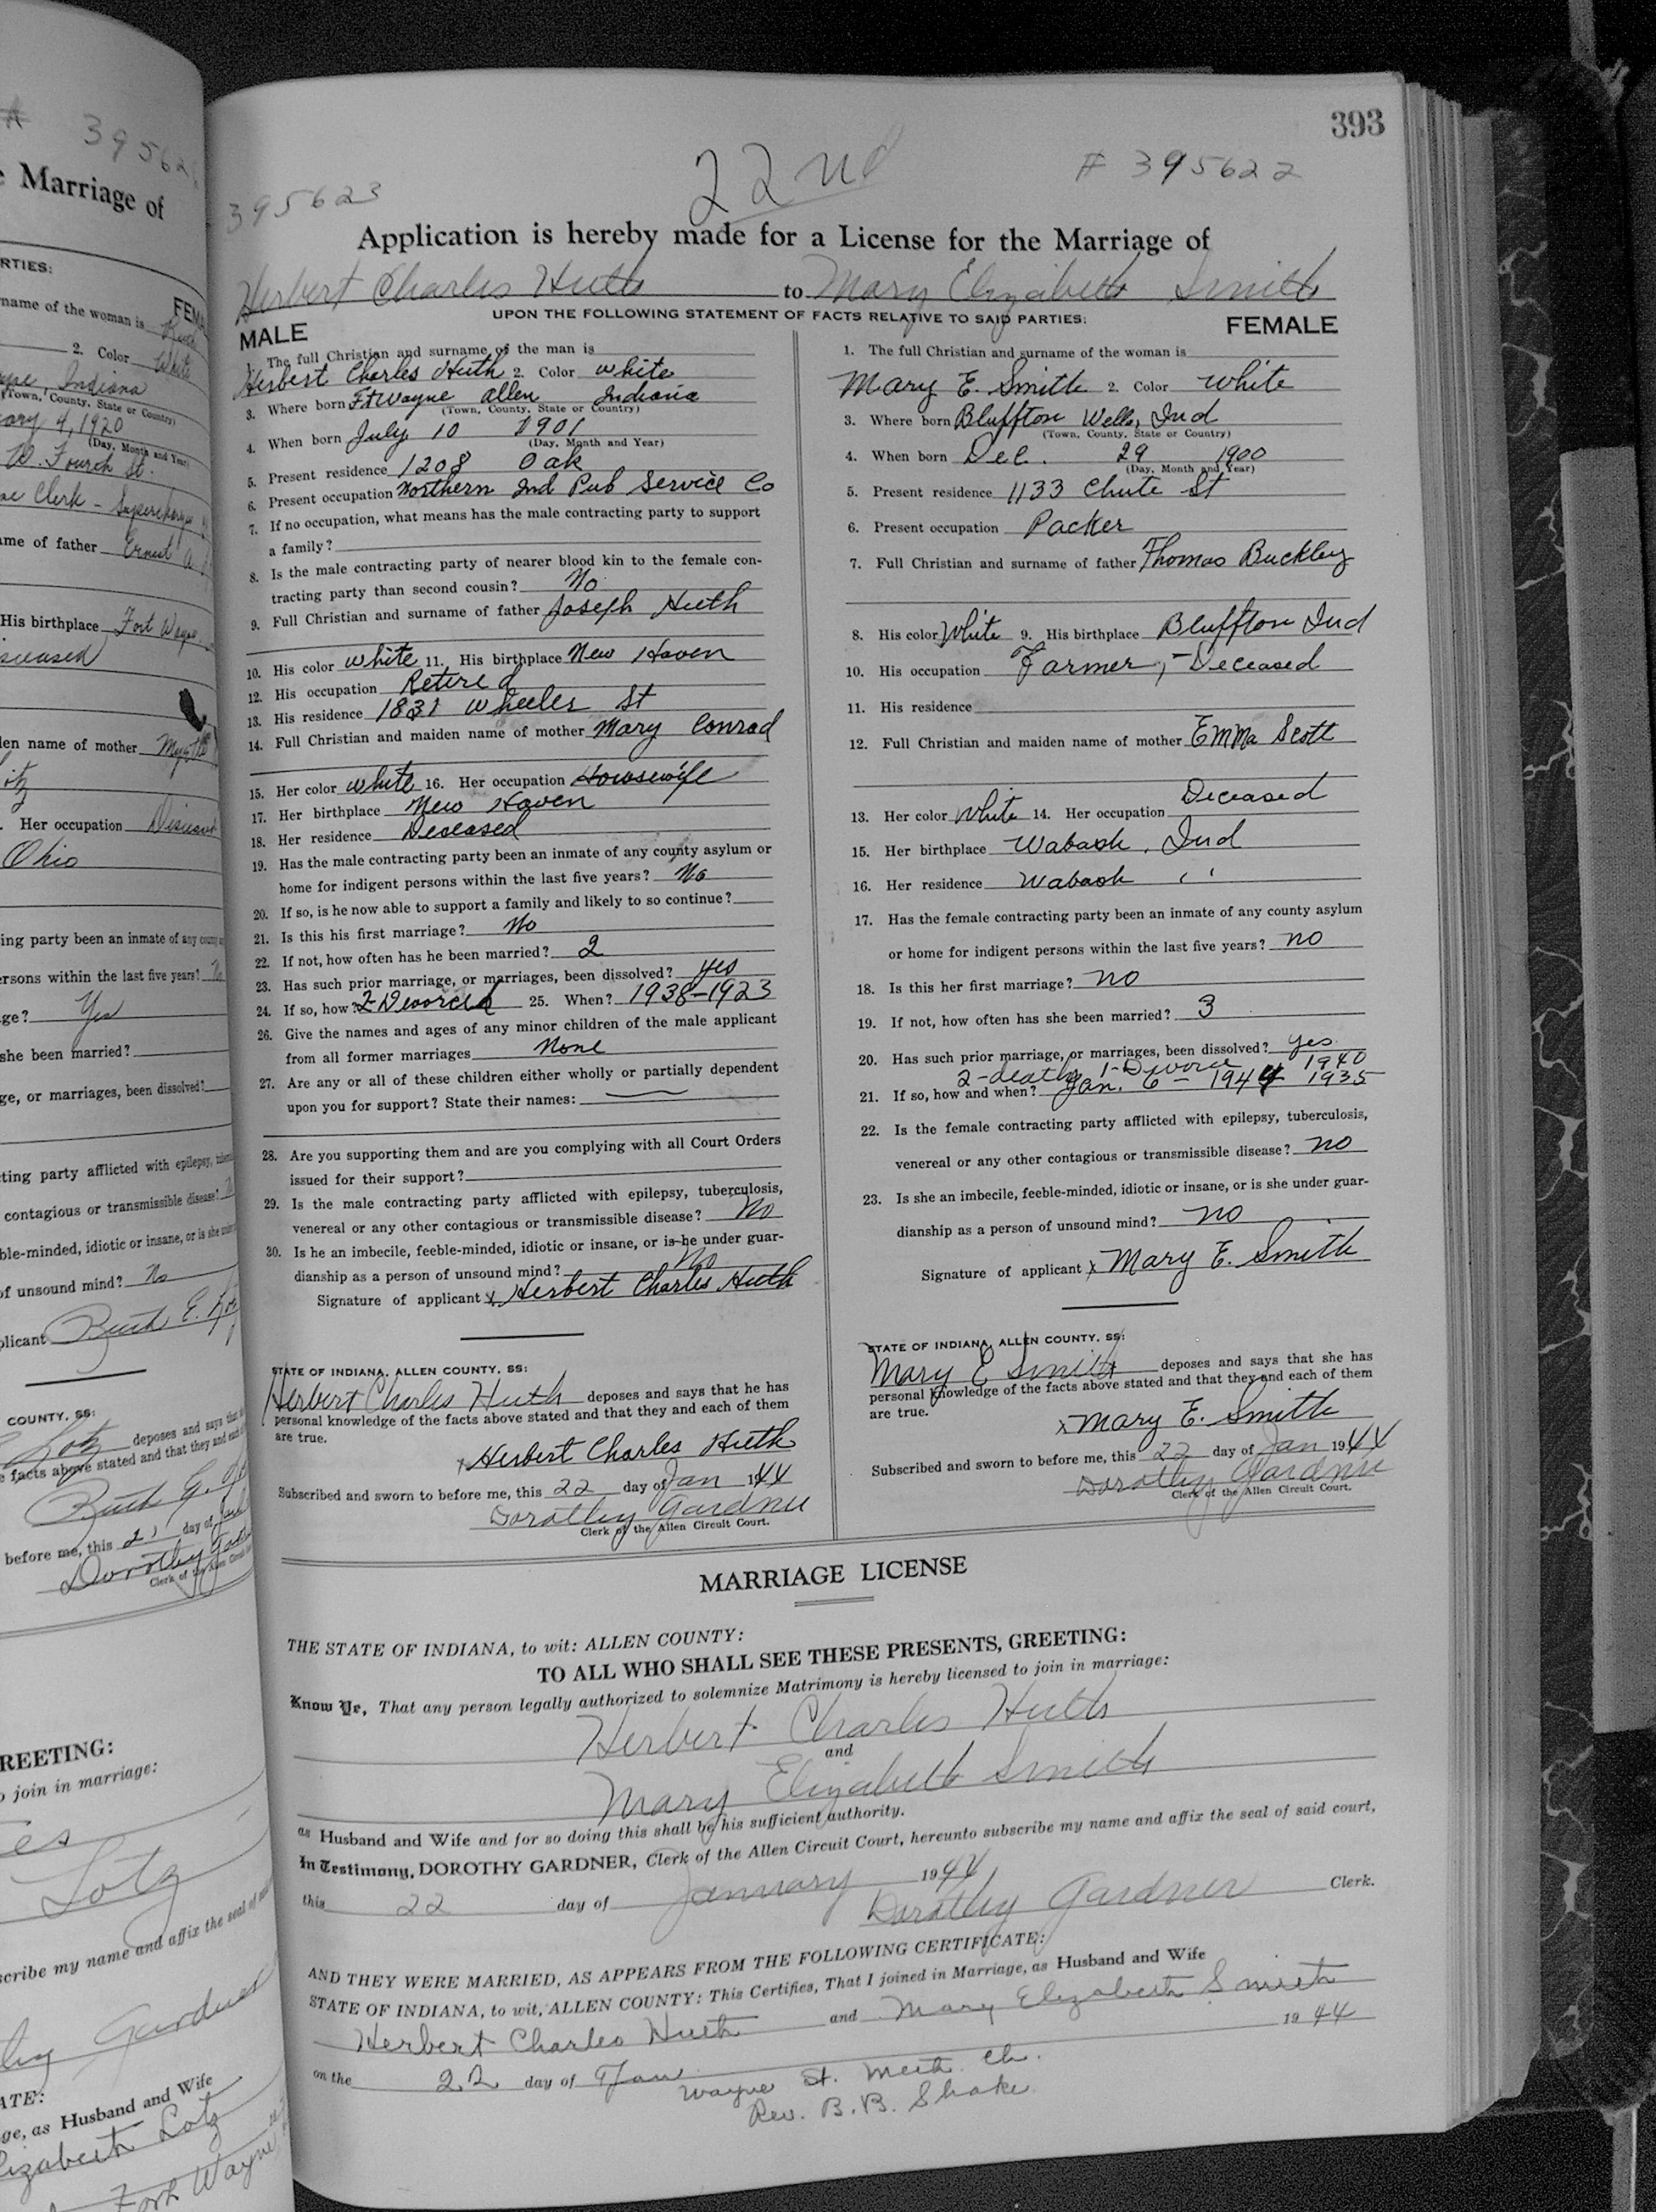 393
22nd
# 395622
395623
Application is hereby made for a License for the Marriage of
Herbert Charles Huth to Mary Elizabeth Smith
UPON THE FOLLOWING STATEMENT OF FACTS RELATIVE TO SAID PARTIES:
MALE
1. The full Christian and surname of the man is
Herbert Charles Huth 2. Color white
3. Where born Ft Wayne Allen Indiana
(Town, County, State or Country)
4. When born July 10 1901
(Day, Month and Year)
5. Present residence 1208 Oak
6. Present occupation Northern Ind Pub Service Co
7. If no occupation, what means has the male contracting party to support
a family?
8. Is the male contracting party of nearer blood kin to the female con-
tracting party than second cousin? No
9. Full Christian and surname of father Joseph Huth
10. His color white 11. His birthplace New Haven
12. His occupation Retired
13. His residence 1831 Wheeler St
14. Full Christian and maiden name of mother Mary Conrad
15. Her color white 16. Her occupation Howsewife
17. Her birthplace New Haven
18. Her residence Deceased
19. Has the male contracting party been an inmate of any county asylum or
home for indigent persons within the last five years? No
20. If so, is he now able to support a family and likely to so continue?
21. Is this his first marriage? No
22. If not, how often has he been married? 2
23. Has such prior marriage, or marriages, been dissolved? yes
24. If so, how? 2-Divorced 25. When? 1938-1923
26. Give the names and ages of any minor children of the male applicant
from all former marriages None
27. Are any or all of these children either wholly or partially dependent
upon you for support? State their names: —
28. Are you supporting them and are you complying with all Court Orders
issued for their support?
29. Is the male contracting party afflicted with epilepsy, tuberculosis,
venereal or any other contagious or transmissible disease? No
30. Is he an imbecile, feeble-minded, idiotic or insane, or is he under guar-
dianship as a person of unsound mind? No
Signature of applicant x Herbert Charles Huth
STATE OF INDIANA, ALLEN COUNTY, SS:
Herbert Charles Huth deposes and says that he has
personal knowledge of the facts above stated and that they and each of them
are true.
x Herbert Charles Huth
Subscribed and sworn to before me, this 22 day of Jan 1944
Dorothy Gardner
Clerk of the Allen Circuit Court.
FEMALE
1. The full Christian and surname of the woman is
Mary E. Smith 2. Color White
3. Where born Bluffton Wells, Ind
(Town, County, State or Country)
4. When born Dec. 29 1900
(Day, Month and Year)
5. Present residence 1133 Chute St
6. Present occupation Packer
7. Full Christian and surname of father Thomas Buckley
8. His color White 9. His birthplace Bluffton Ind
10. His occupation Farmer, - Deceased
11. His residence
12. Full Christian and maiden name of mother Emma Scott
13. Her color White 14. Her occupation Deceased
15. Her birthplace Wabash, Ind
16. Her residence Wabash ''
17. Has the female contracting party been an inmate of any county asylum
or home for indigent persons within the last five years? no
18. Is this her first marriage? no
19. If not, how often has she been married? 3
20. Has such prior marriage, or marriages, been dissolved? yes
2-deaths 1-Divorce 1940
21. If so, how and when? Jan. 6 - 1944 1935
22. Is the female contracting party afflicted with epilepsy, tuberculosis,
venereal or any other contagious or transmissible disease? no
23. Is she an imbecile, feeble-minded, idiotic or insane, or is she under guar-
dianship as a person of unsound mind? no
Signature of applicant x Mary E. Smith
STATE OF INDIANA, ALLEN COUNTY, SS:
Mary E Smith deposes and says that she has
personal knowledge of the facts above stated and that they and each of them
are true.
x Mary E. Smith
Subscribed and sworn to before me, this 22 day of Jan 1944
Dorothy Gardner
Clerk of the Allen Circuit Court.
MARRIAGE LICENSE
THE STATE OF INDIANA, to wit: ALLEN COUNTY:
TO ALL WHO SHALL SEE THESE PRESENTS, GREETING:
Know Ye, That any person legally authorized to solemnize Matrimony is hereby licensed to join in marriage:
Herbert Charles Huth
and
Mary Elizabeth Smith
as Husband and Wife and for so doing this shall be his sufficient authority.
In Testimony, DOROTHY GARDNER, Clerk of the Allen Circuit Court, hereunto subscribe my name and affix the seal of said court,
this 22 day of January 1944
Dorothy Gardner Clerk.
AND THEY WERE MARRIED, AS APPEARS FROM THE FOLLOWING CERTIFICATE:
STATE OF INDIANA, to wit, ALLEN COUNTY: This Certifies, That I joined in Marriage, as Husband and Wife
Herbert Charles Huth and Mary Elizabeth Smith
on the 22 day of Jan 1944
Wayne St. Meth. Ch.
Rev. B. B. Shake